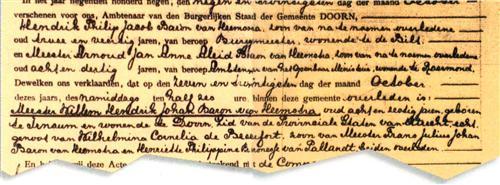 In het jaar negentienhonderd negen, den negen en twintigsten dag der maand October
verschenen voor ons, Ambtenaar van den Burgerlijken Stand der Gemeente DOORN,
Hendrik Philip Jacob Baron van Heemstra, zoon van na te noemen overledene
oud twee en dertig jaren, van beroep Burgemeester, wonende te de Bilt,
en Meester Arnoud Jan Anne Aleid Baron van Heemstra, zoon van na te noemen overledene
oud acht en dertig jaren, van beroep Ambtenaar van het Openbaar Ministerie, wonende te Roermond,
Dewelken ons verklaarden, dat op den zeven en twintigsten dag der maand October
dezes jaars, des namiddags ten half ure binnen deze gemeente overleden is:
Meester Willem Hendrik Johan Baron van Heemstra oud acht en zestig jaren, geboren
te en wonende te Doorn, lid van de Provinciale Staten van Utrecht, echt-
genoot van Wilhelmina Cornelia de Beaufort, zoon van Meester Frans Julius Johan
Baron van Heemstra en Henriette Philippine Baronesse van Pallandt, beiden overleden.
En hebben wij deze Acte met de Comp